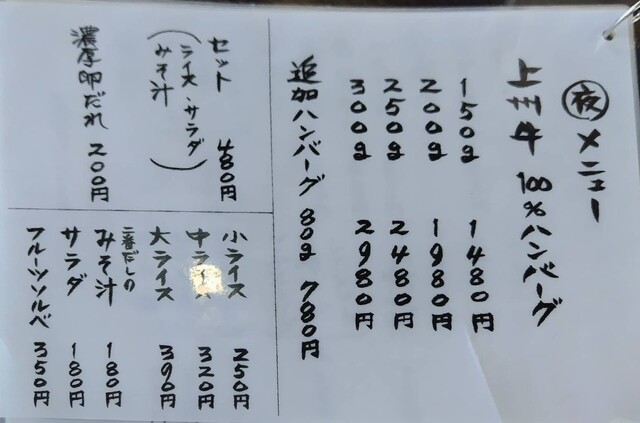 夜メニュー
上州牛 100%ハンバーグ
150g 1480円
200g 1980円
250g 2480円
300g 2980円
追加ハンバーグ 80g 780円
セット 480円
(ライス・サラダ
みそ汁)
濃厚卵だれ 200円
小ライス 250円
中ライス 320円
大ライス 390円
二番だしの
みそ汁 180円
サラダ 180円
フルーツソルベ 350円